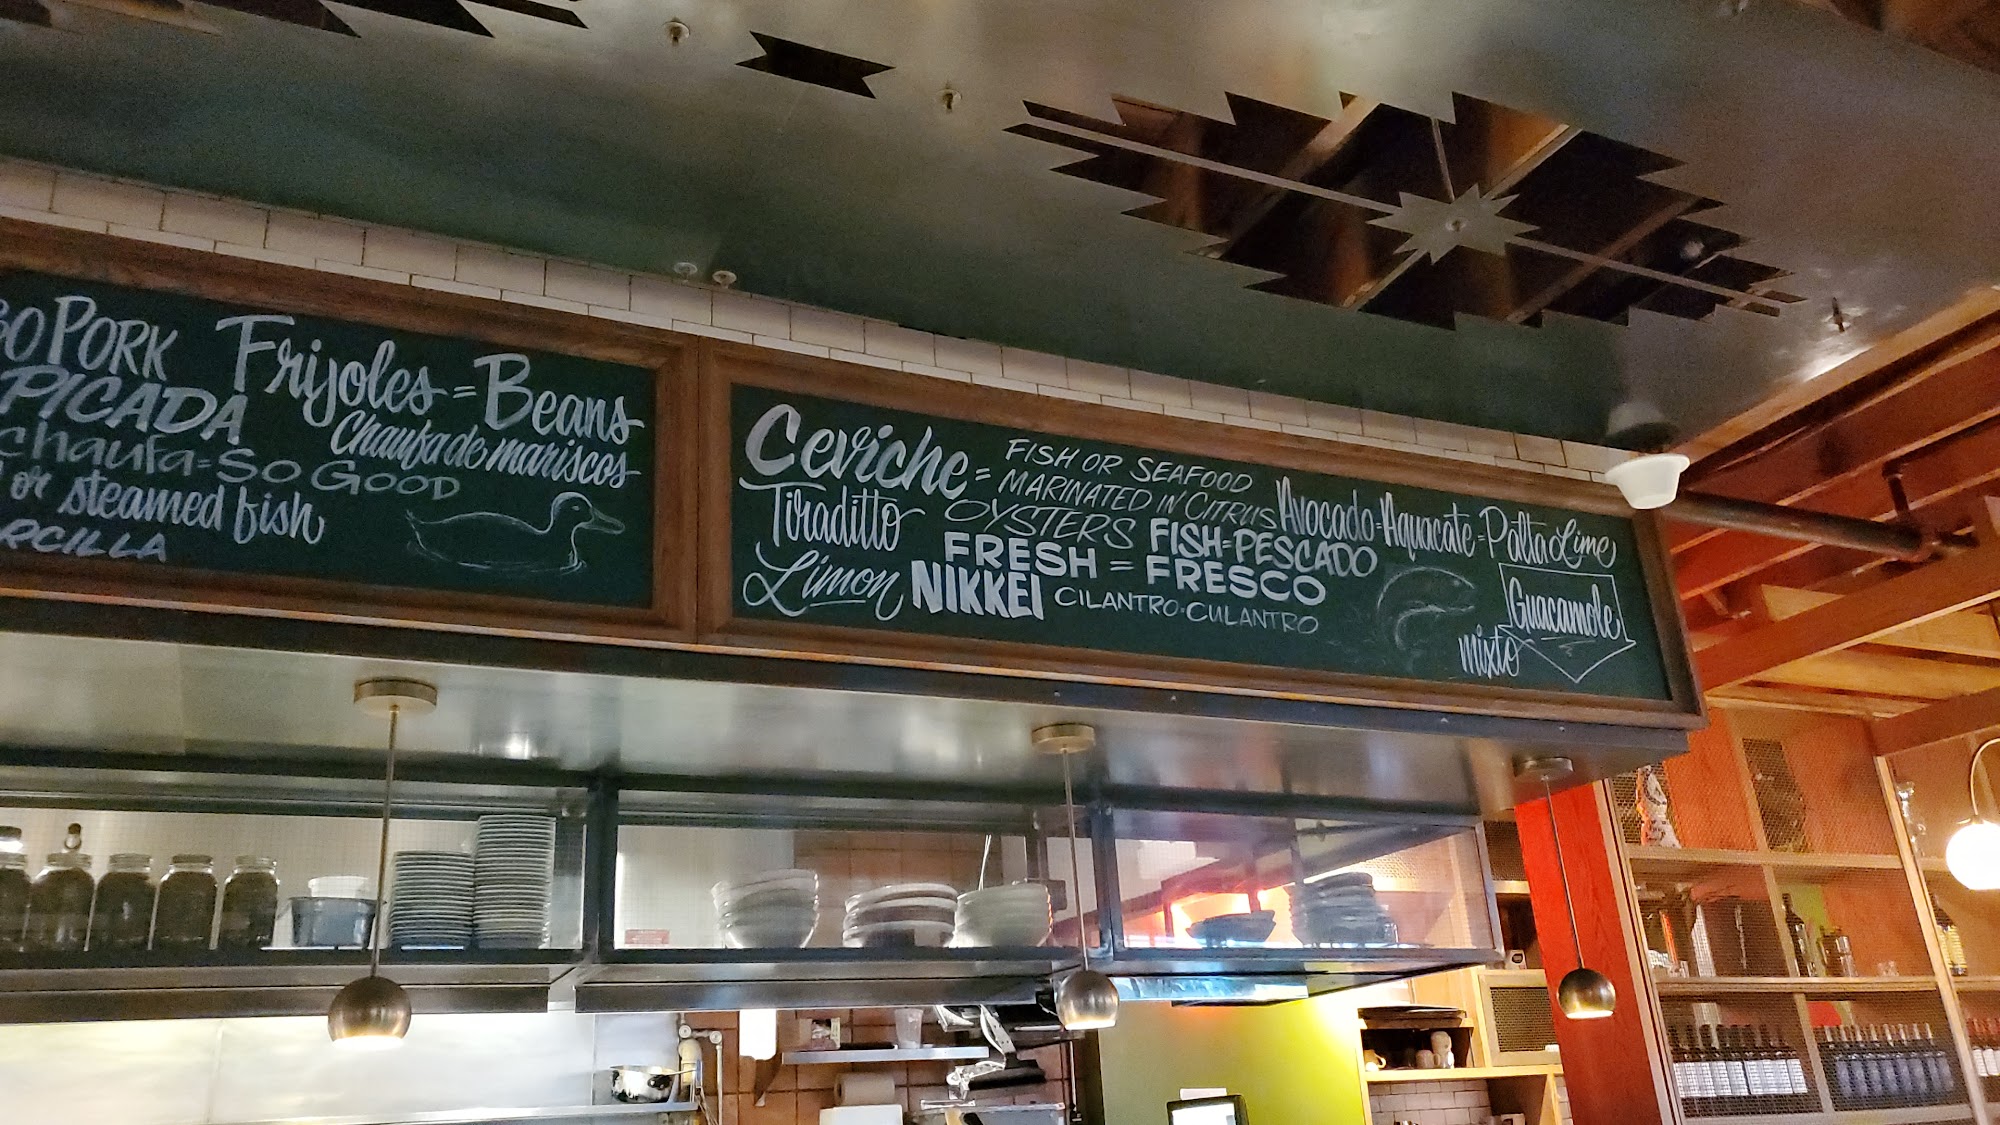 PORK
PICADA
Frijoles = Beans
Chaufa de mariscos
chaufa = SO GOOD
or steamed fish
Ceviche = FISH OR SEAFOOD
MARINATED IN CITRUS
Tiraditto
OYSTERS
FISH = PESCADO
FRESH = FRESCO
Limon
NIKKEI
CILANTRO · CULANTRO
Avocado = Aguacate = Palta Lime
Guacamole
mixto